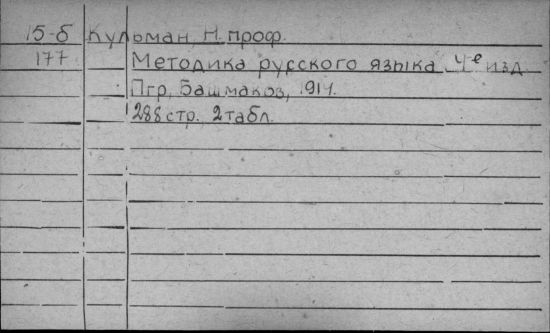 15-б Кульман, Н. проф.
177 Методика русского языка. 4е изд.
Пгр, Башмаков, 1914.
288 стр. 2 табл.